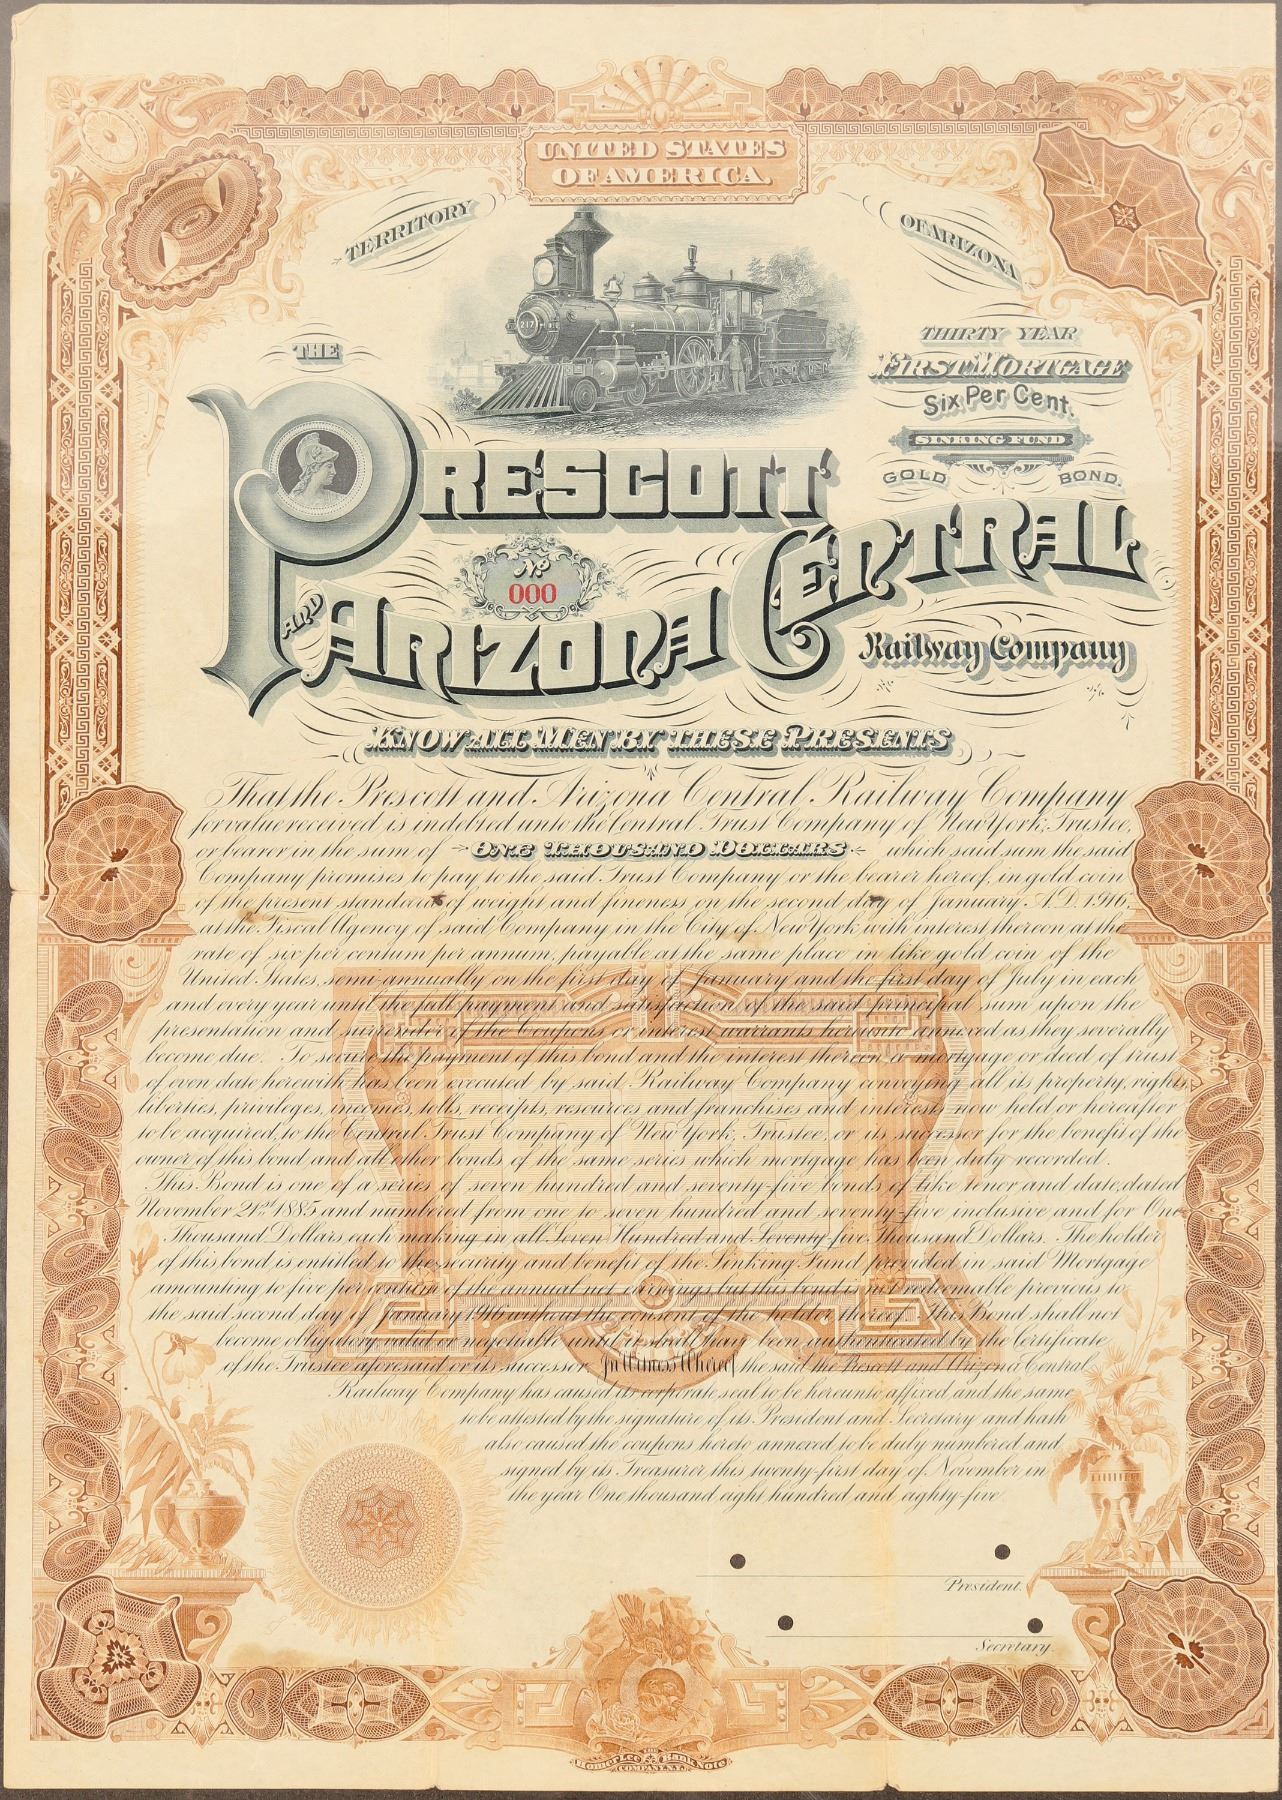 UNITED STATES
OF AMERICA.
TERRITORY
OF ARIZONA
217
THIRTY YEAR
FIRST MORTGAGE
Six Per Cent.
SINKING FUND
GOLD BOND.
THE
PRESCOTT
No
000
AND ARIZONA CENTRAL
Railway Company
KNOW ALL MEN BY THESE PRESENTS
That the Prescott and Arizona Central Railway Company
for value received is indebted unto the Central Trust Company of New York, Trustee,
or bearer in the sum of ONE THOUSAND DOLLARS which said sum the said
Company promises to pay to the said Trust Company or the bearer hereof, in gold coin
of the present standard of weight and fineness on the second day of January A.D. 1916,
at the Fiscal Agency of said Company in the City of New York with interest thereon at the
rate of six per centum per annum, payable at the same place in like gold coin of the
United States, semi-annually on the first day of January and the first day of July in each
and every year until the full payment and satisfaction of the said principal sum upon the
presentation and surrender of the Coupons or interest warrants hereunto annexed, as they severally
become due. To secure the payment of this bond and the interest thereon a mortgage or deed of trust
of even date herewith has been executed by said Railway Company conveying all its property, rights,
liberties, privileges, incomes, tolls, receipts, resources and franchises and interests now held or hereafter
to be acquired, to the Central Trust Company of New York, Trustee, or its successor for the benefit of the
owner of this bond and all other bonds of the same series which mortgage has been duly recorded.
This Bond is one of a series of seven hundred and seventy-five bonds of like tenor and date, dated
November 21st 1885 and numbered from one to seven hundred and seventy-five inclusive and for One
Thousand Dollars each making in all Seven Hundred and Seventy five Thousand Dollars. The holder
of this bond is entitled to the security and benefit of the Sinking Fund provided in said Mortgage
amounting to five per centum of the annual net earnings but this bond is not redeemable previous to
the said second day of January 1916 without the consent of the holder thereof. This Bond shall not
become obligatory valid or negotiable until it shall have been authenticated by the Certificate
of the Trustee aforesaid or its successor. In Witness Whereof the said the Prescott and Arizona Central
Railway Company has caused its corporate seal to be hereunto affixed and the same
to be attested by the signature of its President and Secretary and hath
also caused the coupons hereto annexed to be duly numbered and
signed by its Treasurer this twenty-first day of November in
the year One thousand eight hundred and eighty-five
President.
Secretary.
THE
Homer Lee Bank Note
COMPANY, N.Y.